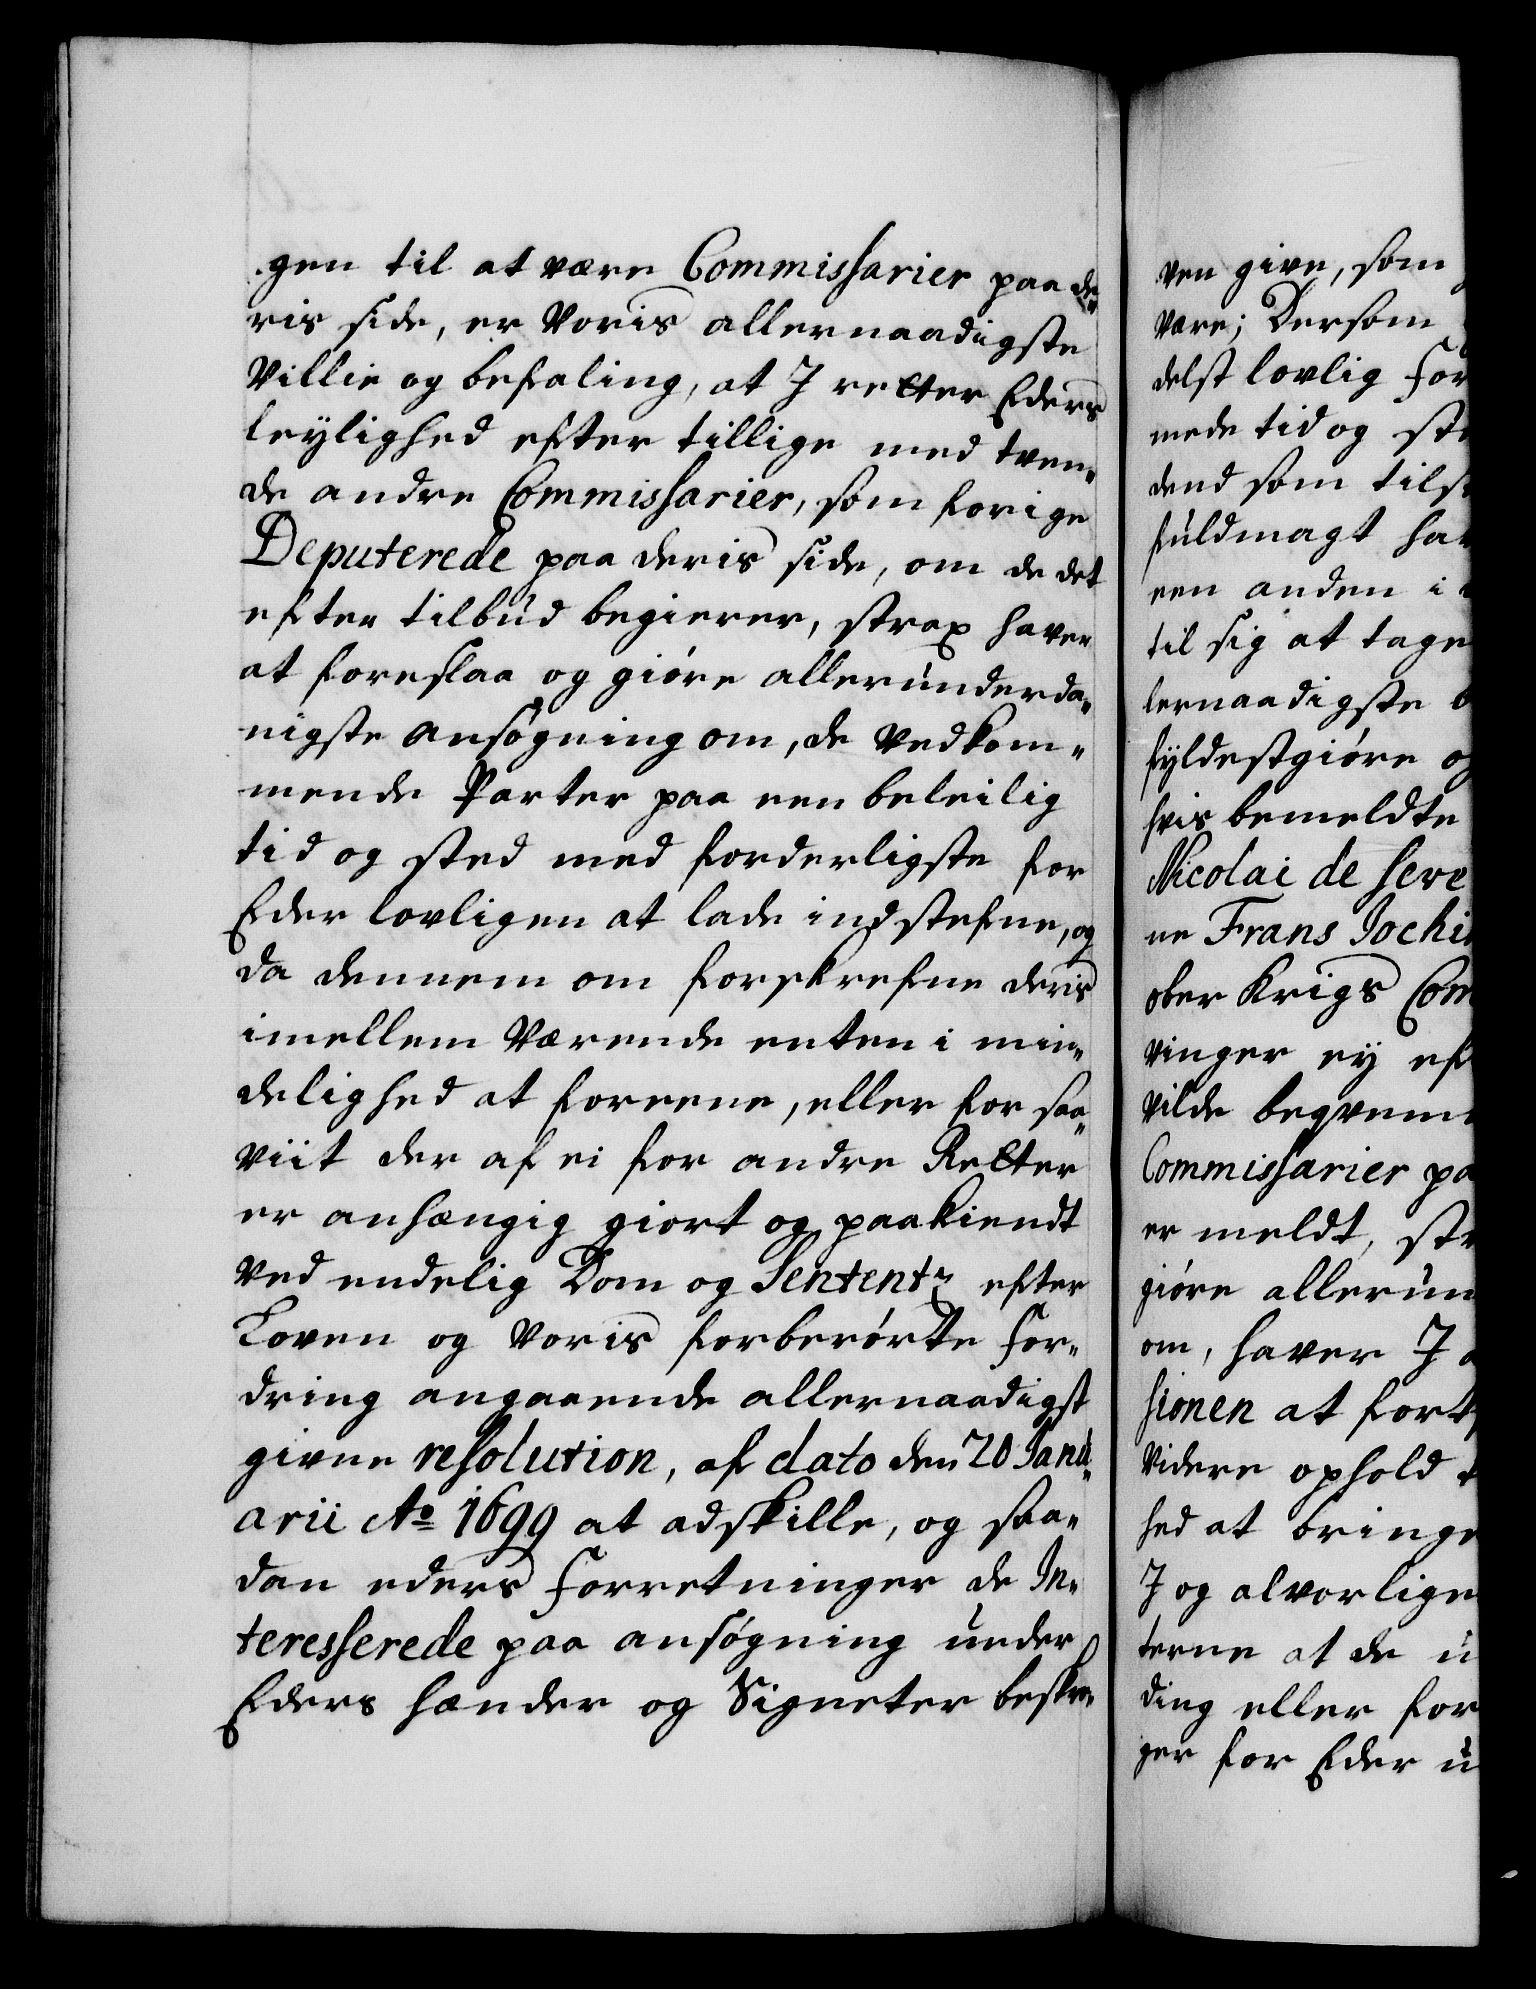 gen til at være Commissarier paa de„
ris side, er Voris allernaadigste
Villie og befaling, at I retter Eders
leylighed efter tillige med tven„
de andre Commissarier, som forige
Deputerede paa deris side, om de det
efter tilbud begierer, strax haver
at foreslaa og giøre allerunderda„
nigste ansøgning om, de Vedkom„
mende Parter paa een beleilig
tid og sted med forderligste for
Eder lovligen at lade indstefne, og
da dennem om forskrefne deris
imellem Værende enten i min„
delighed at foreene, eller for saa„
viit der af ei for andre Retter
er anhængig giort og paakiendt
ved endelig Dom og Sententz efter
Loven og Voris forberørte For„
dring angaaende allernaadigst
givne resolution, af dato den 20 Janu„
arii Aº 1699 at adskille, og saa„
dan eders Forretninger de In„
teresserede paa ansøgning under
Eders hænder og Signeter beskre„
ven give, som
være; Dersom
delst lovlig For
mede tid og ste
dend som tils
fuldmagt ha
een anden i
til sig at tage
lernaadigste b
fyldestgiøre og
hvis bemeldte
Nicolai de seve
ne Frans Jochi
ober Krigs Com
vinger ey ef
vilde beqvem
Commissarier pa
er meldt, str
giøre allerun
om, haver I a
sionen at fort
videre ophold
hed at bringe
I og alvorlige
terne at de u
ding eller for
ger for Eder u